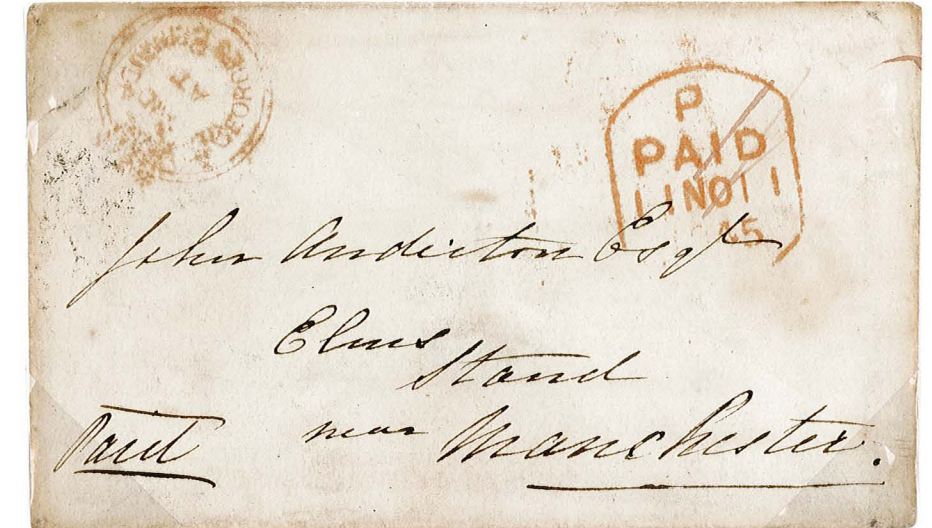 P
PAID
11NO11
45
John Anderton Esqr
Elms
Stand
near Manchester.
Paid